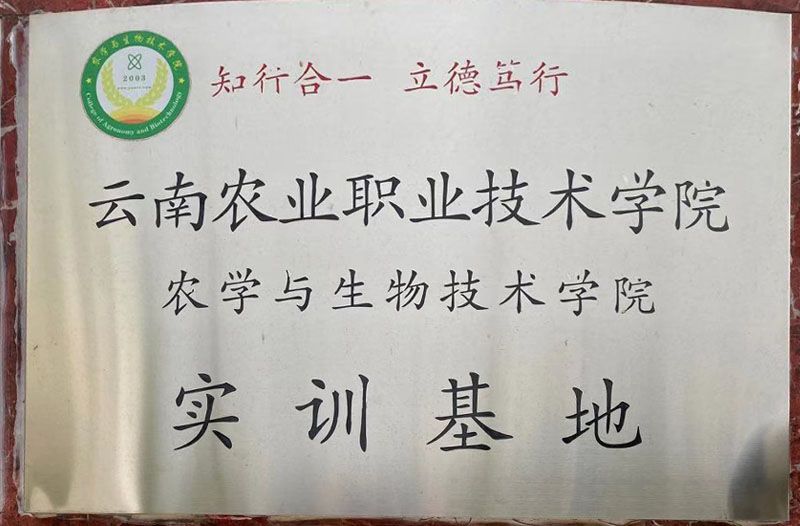 农学与生物技术学院
2003
College of Agronomy and Biotechnology
知行合一 立德笃行
云南农业职业技术学院
农学与生物技术学院
实训基地